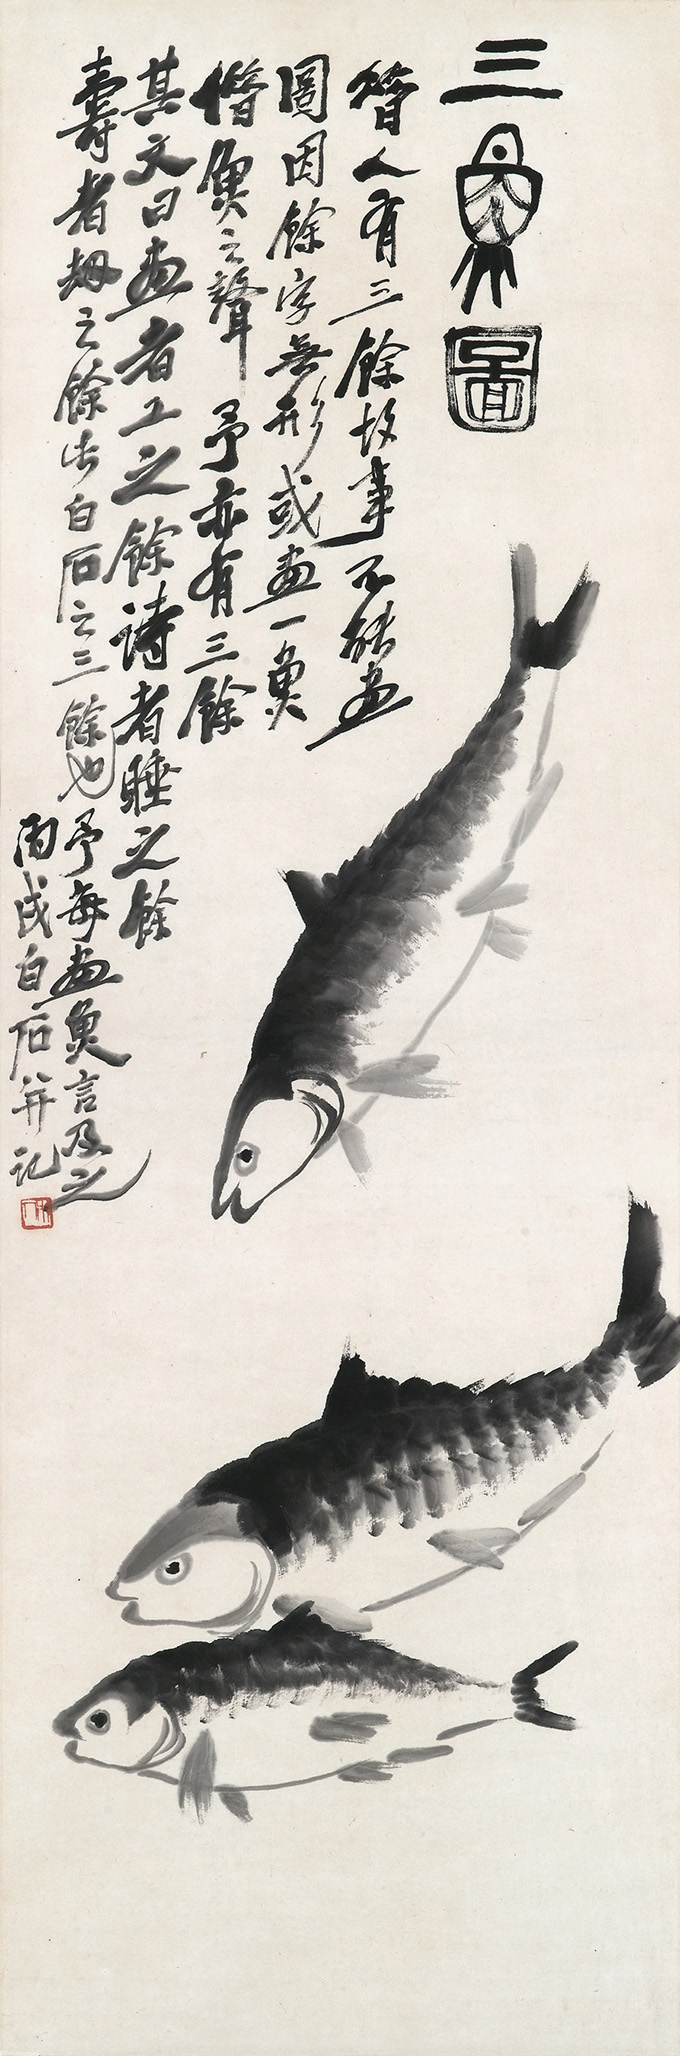 三魚圖
昔人有三餘故事不能畫
圖因餘字無形或畫一魚
借魚之聲予亦有三餘
其文曰畫者工之餘詩者睡之餘
壽者劫之餘此白石之三餘也予每畫魚言及之
丙戌白石并記